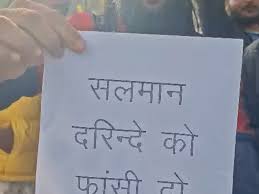 सलमान
दरिन्दे को
फांसी दो